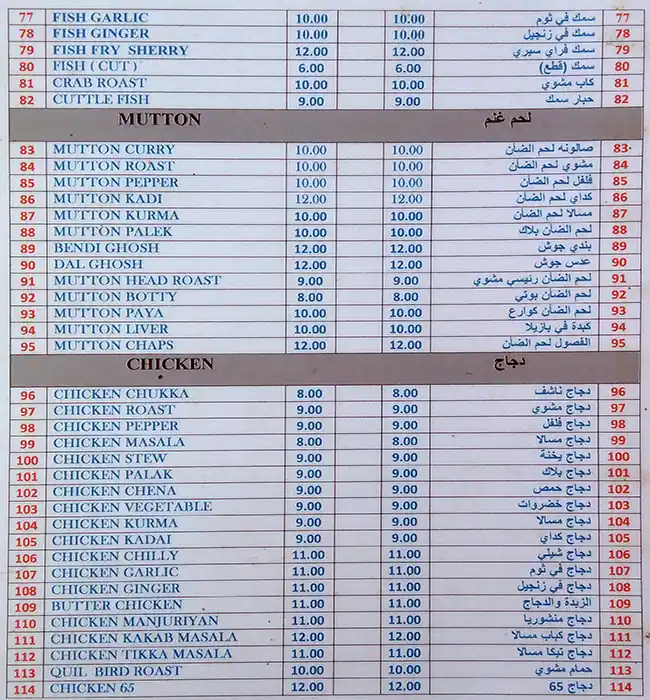 77 FISH GARLIC 10.00 10.00 سمك في ثوم 77
78 FISH GINGER 10.00 10.00 سمك في زنجيل 78
79 FISH FRY SHERRY 12.00 12.00 سمك فراي سيري 79
80 FISH ( CUT ) 6.00 6.00 سمك (قطع) 80
81 CRAB ROAST 10.00 10.00 كاب مشوي 81
82 CUTTLE FISH 9.00 9.00 حبار سمك 82
MUTTON لحم غنم
83 MUTTON CURRY 10.00 10.00 صالونه لحم الضأن 83
84 MUTTON ROAST 10.00 10.00 مشوي لحم الضأن 84
85 MUTTON PEPPER 10.00 10.00 فلفل لحم الضأن 85
86 MUTTON KADI 12.00 12.00 كداي لحم الضأن 86
87 MUTTON KURMA 10.00 10.00 مسالا لحم الضأن 87
88 MUTTON PALEK 10.00 10.00 لحم الضأن بلاك 88
89 BENDI GHOSH 12.00 12.00 بندي جوش 89
90 DAL GHOSH 12.00 12.00 عدس جوش 90
91 MUTTON HEAD ROAST 9.00 9.00 لحم الضأن رئيسي مشوي 91
92 MUTTON BOTTY 8.00 8.00 لحم الضأن بوتي 92
93 MUTTON PAYA 10.00 10.00 لحم الضأن كوارع 93
94 MUTTON LIVER 10.00 10.00 كبدة في بازيلا 94
95 MUTTON CHAPS 12.00 12.00 الفصول لحم الضأن 95
CHICKEN دجاج
96 CHICKEN CHUKKA 8.00 8.00 دجاج ناشف 96
97 CHICKEN ROAST 9.00 9.00 دجاج مشوي 97
98 CHICKEN PEPPER 9.00 9.00 دجاج فلفل 98
99 CHICKEN MASALA 8.00 8.00 دجاج مسالا 99
100 CHICKEN STEW 9.00 9.00 دجاج يخنة 100
101 CHICKEN PALAK 9.00 9.00 دجاج بلاك 101
102 CHICKEN CHENA 9.00 9.00 دجاج حمص 102
103 CHICKEN VEGETABLE 9.00 9.00 دجاج خضروات 103
104 CHICKEN KURMA 9.00 9.00 دجاج مسالا 104
105 CHICKEN KADAI 9.00 9.00 دجاج كداي 105
106 CHICKEN CHILLY 11.00 11.00 دجاج شيلي 106
107 CHICKEN GARLIC 11.00 11.00 دجاج في ثوم 107
108 CHICKEN GINGER 11.00 11.00 دجاج في زنجيل 108
109 BUTTER CHICKEN 11.00 11.00 الزبدة والدجاج 109
110 CHICKEN MANJURIYAN 11.00 11.00 دجاج منشوريا 110
111 CHICKEN KAKAB MASALA 12.00 12.00 دجاج كباب مسالا 111
112 CHICKEN TIKKA MASALA 11.00 11.00 دجاج تيكا مسالا 112
113 QUIL BIRD ROAST 10.00 10.00 حمام مشوي 113
114 CHICKEN 65 12.00 12.00 دجاج 65 114